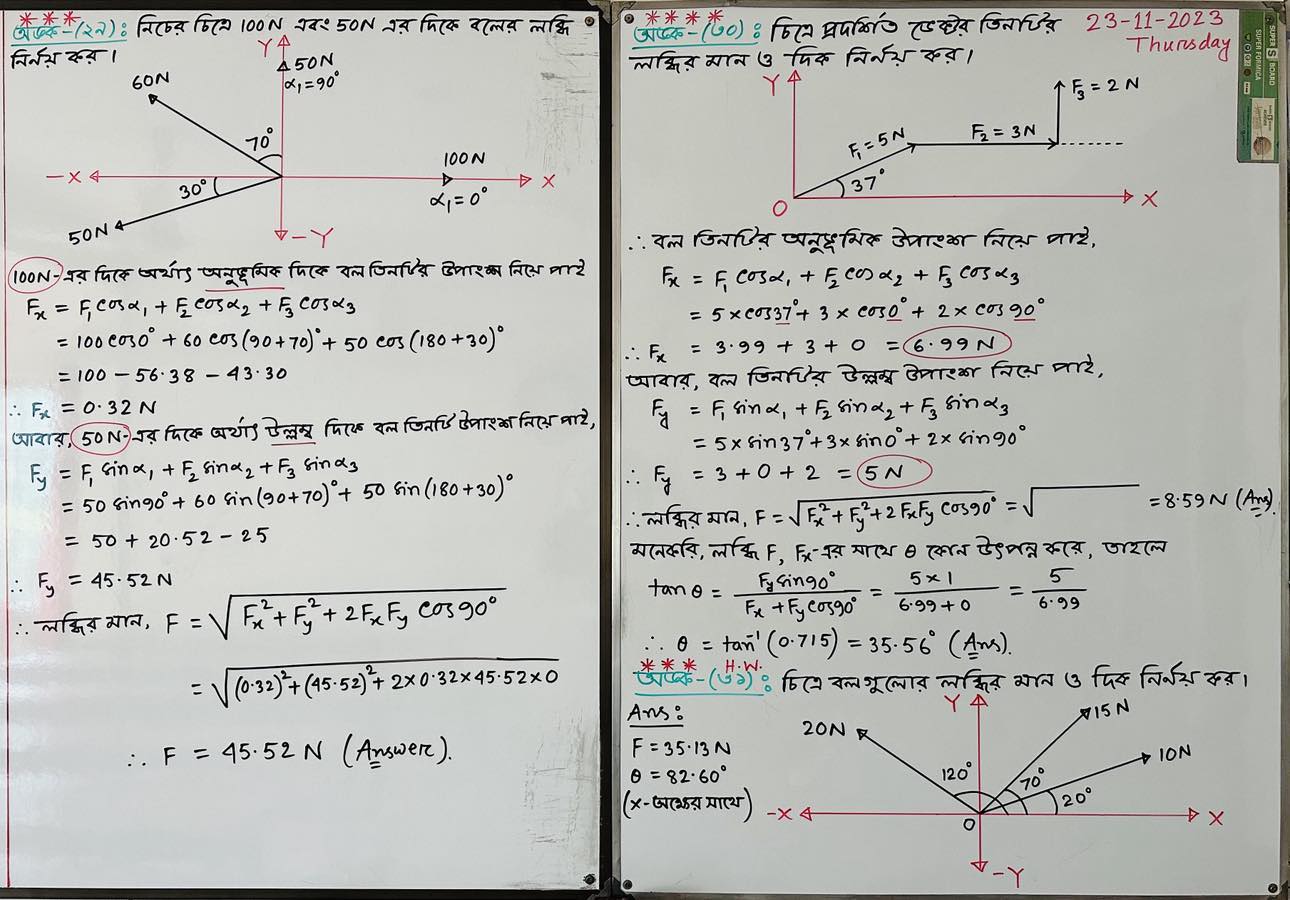 * * *
অংক-(২৯): নিচের চিত্রে 100N এবং 50N এর দিকে বলের লব্ধি
নির্ণয় কর।
Y
50N
α₁=90°
60N
70°
100N
-X
X
30°
α₁=0°
50N
-Y
100N-এর দিকে অর্থাৎ অনুভূমিক দিকে বল তিনটির উপাংশ নিয়ে পাই
Fₓ = F₁cosα₁ + F₂cosα₂ + F₃cosα₃
= 100cos0° + 60cos(90+70)° + 50 cos(180+30)°
= 100 - 56.38 - 43.30
∴ Fₓ = 0.32 N
আবার, 50N-এর দিকে অর্থাৎ উল্লম্ব দিকে বল তিনটি উপাংশ নিয়ে পাই,
Fy = F₁ sinα₁ + F₂ sinα₂ + F₃ sinα₃
= 50 sin90° + 60 sin(90+70)° + 50 sin(180+30)°
= 50 + 20.52 - 25
∴ Fy = 45.52 N
∴ লব্ধির মান, F = √(Fₓ² + Fy² + 2FₓFy cos90°)
= √((0.32)² + (45.52)² + 2×0.32×45.52×0)
∴ F = 45.52 N (Answer).
* * * *
অংক-(৩০): চিত্রে প্রদর্শিত ভেক্টর তিনটির
23-11-2023
Thursday
লব্ধির মান ও দিক নির্ণয় কর।
SUPER S BOARD
SUPER FORMICA
Y
F₃ = 2 N
F₁ = 5N
F₂ = 3N
37°
O
X
∴ বল তিনটির অনুভূমিক উপাংশ নিয়ে পাই,
Fₓ = F₁cosα₁ + F₂cosα₂ + F₃cosα₃
= 5×cos37° + 3×cos0° + 2×cos90°
∴ Fₓ = 3.99 + 3 + 0 = 6.99 N
আবার, বল তিনটির উল্লম্ব উপাংশ নিয়ে পাই,
Fy = F₁sinα₁ + F₂sinα₂ + F₃sinα₃
= 5×sin37° + 3×sin0° + 2×sin90°
∴ Fy = 3 + 0 + 2 = 5 N
∴ লব্ধির মান, F = √(Fₓ² + Fy² + 2FₓFy cos90°) = √ = 8.59 N (Ans).
মনেকরি, লব্ধি F, Fₓ-এর সাথে θ কোন উৎপন্ন করে, তাহলে
tanθ = Fy sin90° / Fₓ + Fy cos90° = 5×1 / 6.99+0 = 5 / 6.99
∴ θ = tan⁻¹(0.715) = 35.56° (Ans).
* * * H.W.
অংক-(৩১): চিত্রে বলগুলোর লব্ধির মান ও দিক নির্ণয় কর।
Ans:
F = 35.13 N
θ = 82.60°
(X-অক্ষের সাথে)
Y
15N
20N
10N
120°
70°
20°
-X
O
X
-Y